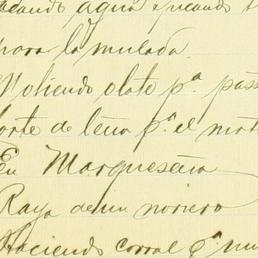 acando agua y picando
para la mulada.
Moliendo olote pª pas
orte de leña pª el mot
En Marqueseña
Raya de un noriero
Haciendo corral pª mu